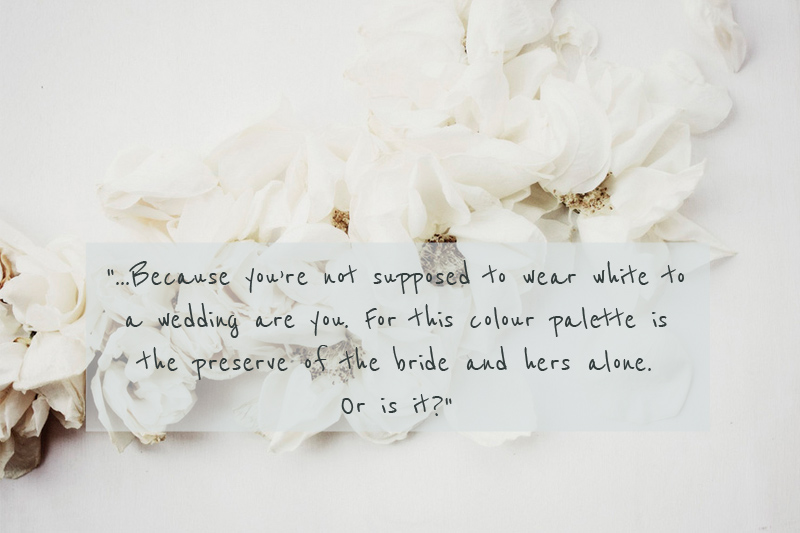 "...Because you're not supposed to wear white to
a wedding are you. For this colour palette is
the preserve of the bride and hers alone.
Or is it?"